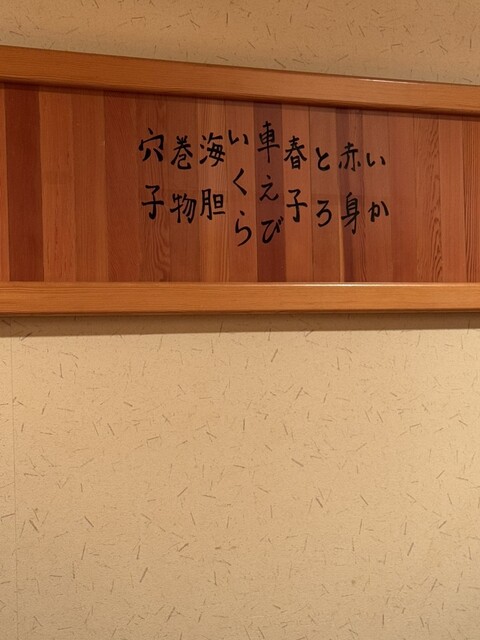 いか
赤身
とろ
春子
車えび
いくら
海胆
巻物
穴子